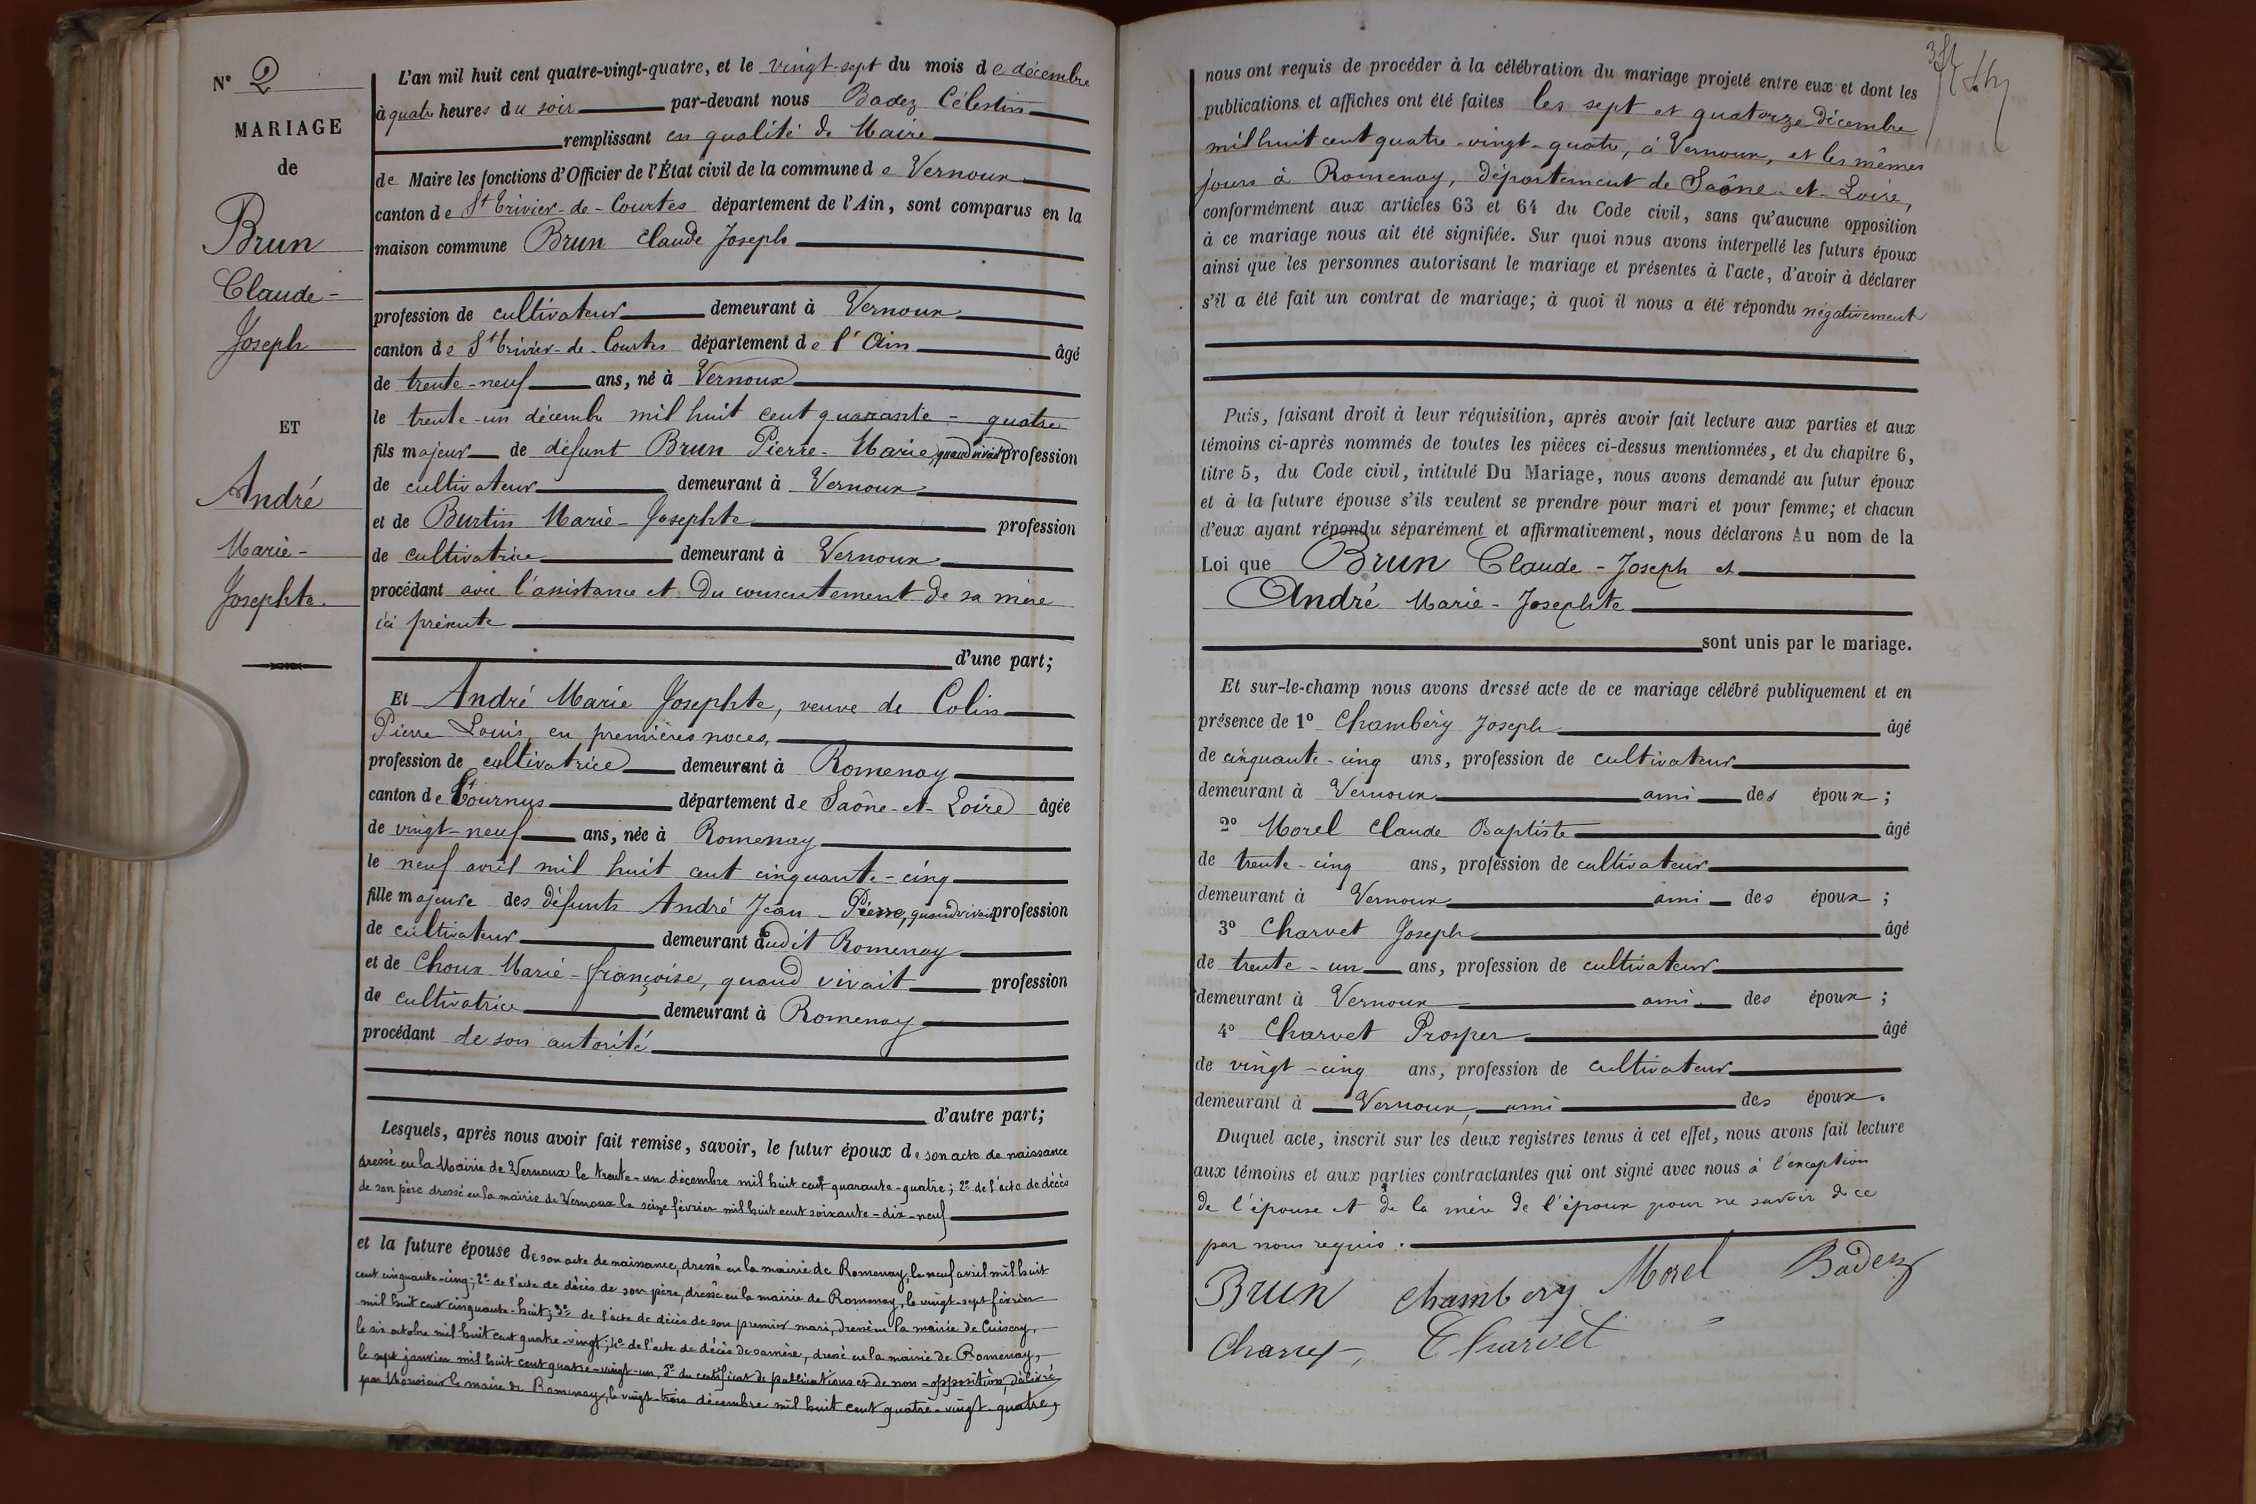 N° 2
MARIAGE
de
Brun
Claude-
Joseph
ET
André
Marie-
Josephte.
L'an mil huit cent quatre-vingt-quatre, et le vingt-sept du mois de décembre
à quatre heures du soir par-devant nous Badez Célestin
remplissant en qualité de Maire
de Maire les fonctions d'Officier de l'État civil de la commune de Vernoux
canton de St Trivier-de-Courtes département de l'Ain, sont comparus en la
maison commune Brun Claude Joseph
profession de cultivateur demeurant à Vernoux
canton de St Trivier-de-Courtes département de l'Ain âgé
de trente-neuf ans, né à Vernoux
le trente-un décembre mil huit cent quarante-quatre
fils majeur de défunt Brun Pierre-Marie, quand vivait profession
de cultivateur demeurant à Vernoux
et de Burtin Marie-Josephte profession
de cultivatrice demeurant à Vernoux
procédant avec l'assistance et du consentement de sa mère
ici présente
d'une part;
Et André Marie Josephte, veuve de Colin
Pierre Louis, en premières noces,
profession de cultivatrice demeurant à Romenay
canton de Tournus département de Saône-et-Loire âgée
de vingt-neuf ans, née à Romenay
le neuf avril mil huit cent cinquante-cinq
fille majeure des défunts André Jean-Pierre, quand vivait profession
de cultivateur demeurant audit Romenay
et de Choux Marie-françoise, quand vivait profession
de cultivatrice demeurant à Romenay
procédant de son autorité
d'autre part;
Lesquels, après nous avoir fait remise, savoir, le futur époux de son acte de naissance
dressé en la Mairie de Vernoux le trente-un décembre mil huit cent quarante-quatre; 2° de l'acte de décès
de son père dressé en la mairie de Vernoux le seize février mil huit cent soixante-dix-neuf
et la future épouse de son acte de naissance, dressé en la mairie de Romenay, le neuf avril mil huit
cent cinquante-cinq; 2° de l'acte de décès de son père, dressé en la mairie de Romenay, le vingt-sept février
mil huit cent cinquante-huit; 3° de l'acte de décès de son premier mari, dressé en la mairie de Cuisery,
le six octobre mil huit cent quatre-vingt; 4° de l'acte de décès de sa mère, dressé en la mairie de Romenay,
le sept janvier mil huit cent quatre-vingt-un, 5° du certificat de publications et de non-opposition, délivré
par Monsieur le maire de Romenay, le vingt-trois décembre mil huit cent quatre-vingt-quatre,
nous ont requis de procéder à la célébration du mariage projeté entre eux et dont les
publications et affiches ont été faites les sept et quatorze décembre
mil huit cent quatre-vingt-quatre, à Vernoux, et les mêmes
jours à Romenay, département de Saône-et-Loire,
conformément aux articles 63 et 64 du Code civil, sans qu'aucune opposition
à ce mariage nous ait été signifiée. Sur quoi nous avons interpellé les futurs époux
ainsi que les personnes autorisant le mariage et présentes à l'acte, d'avoir à déclarer
s'il a été fait un contrat de mariage; à quoi il nous a été répondu négativement
Puis, faisant droit à leur réquisition, après avoir fait lecture aux parties et aux
témoins ci-après nommés de toutes les pièces ci-dessus mentionnées, et du chapitre 6,
titre 5, du Code civil, intitulé Du Mariage, nous avons demandé au futur époux
et à la future épouse s'ils veulent se prendre pour mari et pour femme; et chacun
d'eux ayant répondu séparément et affirmativement, nous déclarons Au nom de la
Loi que Brun Claude-Joseph et
André Marie-Josephte
sont unis par le mariage.
Et sur-le-champ nous avons dressé acte de ce mariage célébré publiquement et en
présence de 1° Chambéry Joseph âgé
de cinquante-cinq ans, profession de cultivateur
demeurant à Vernoux ami des époux;
2° Morel Claude Baptiste âgé
de trente-cinq ans, profession de cultivateur
demeurant à Vernoux ami des époux;
3° Charvet Joseph âgé
de trente-un ans, profession de cultivateur
demeurant à Vernoux ami des époux;
4° Charvet Prosper âgé
de vingt-cinq ans, profession de cultivateur
demeurant à Vernoux, ami des époux.
Duquel acte, inscrit sur les deux registres tenus à cet effet, nous avons fait lecture
aux témoins et aux parties contractantes qui ont signé avec nous à l'exception
de l'épouse et de la mère de l'époux pour ne savoir de ce
par nous requis.
Brun Chambéry Morel Badez
Charvet, Charvet